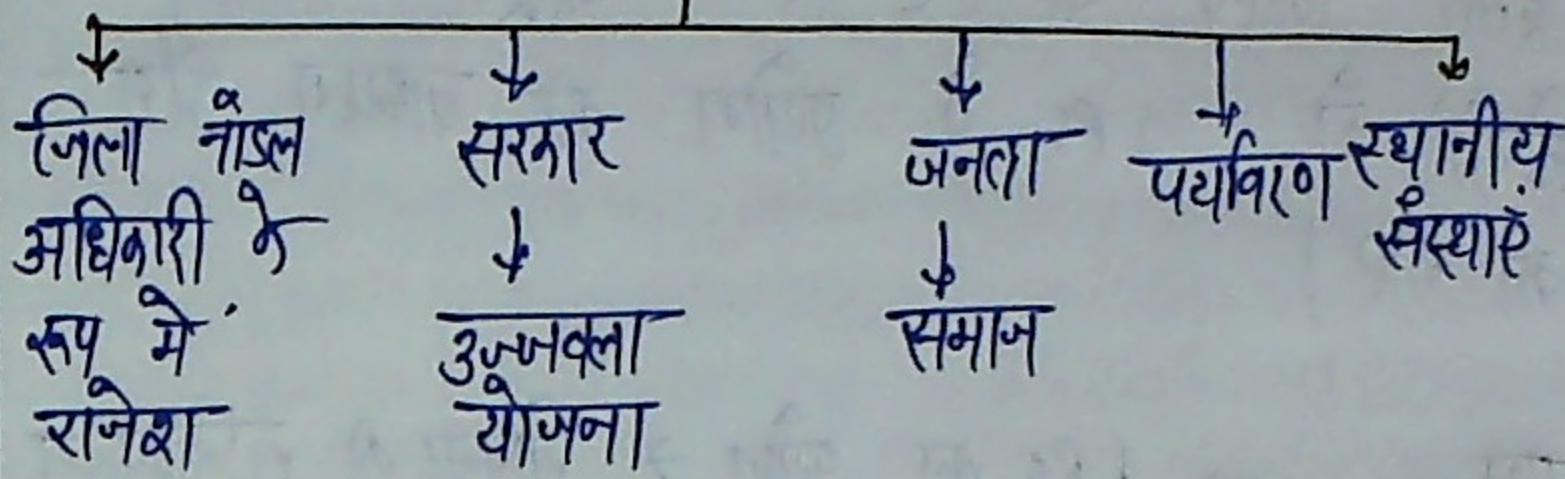 जिला नोडल अधिकारी के रूप में राजेश
सरकार
उज्जवला योजना
जनता
समाज
पर्यावरण
स्थानीय संस्थाएँ